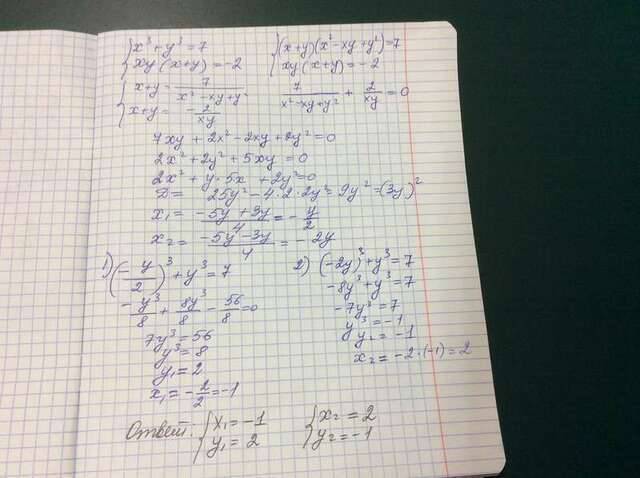 {x³ + y³ = 7 {(x+y)(x²-xy+y²)=7
xy(x+y) = -2 xy(x+y) = -2
{x+y = 7/(x²-xy+y²) 7/(x²-xy+y²) + 2/xy = 0
x+y = -2/xy
7xy + 2x² - 2xy + 2y² = 0
2x² + 2y² + 5xy = 0
2x² + y·5x + 2y² = 0
D = 25y² - 4·2·2y² = 9y² = (3y)²
x₁ = (-5y + 3y)/4 = -y/2
x₂ = (-5y - 3y)/4 = -2y
1) (-y/2)³ + y³ = 7
-y³/8 + 8y³/8 - 56/8 = 0
7y³ = 56
y³ = 8
y₁ = 2
x₁ = -2/2 = -1
2) (-2y)³ + y³ = 7
-8y³ + y³ = 7
-7y³ = 7
y³ = -1
y₂ = -1
x₂ = -2·(-1) = 2
Ответ: {x₁ = -1 {x₂ = 2
y₁ = 2 y₂ = -1